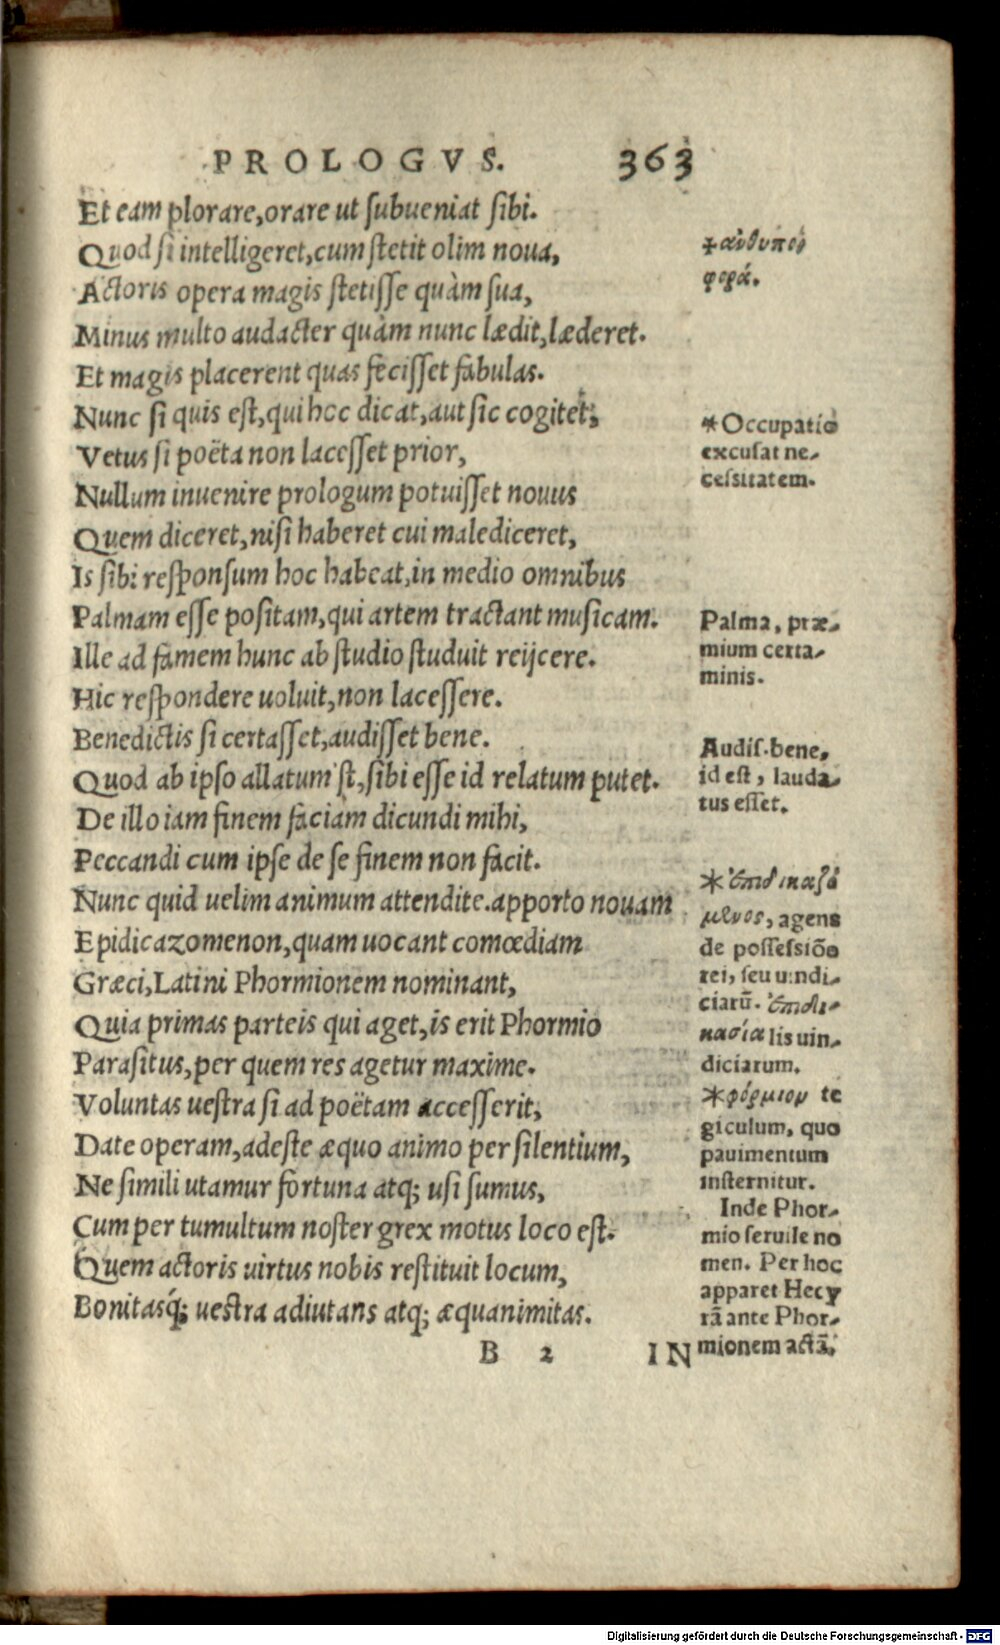 PROLOGVS. 363
Et eam plorare, orare ut ſubueniat ſibi.
Quod ſi intelligeret, cum ſtetit olim noua,
Actoris opera magis ſtetiſſe quàm ſua,
Minus multo audacter quàm nunc lædit, læderet.
Et magis placerent quas feciſſet fabulas.
Nunc ſi quis eſt, qui hoc dicat, aut ſic cogitet;
Vetus ſi poëta non laceſſet prior,
Nullum inuenire prologum potuiſſet nouus
Quem diceret, niſi haberet cui malediceret,
Is ſibi reſponſum hoc habeat, in medio omnibus
Palmam eſſe poſitam, qui artem tractant muſicam.
Ille ad famem hunc ab ſtudio ſtuduit reijcere.
Hic reſpondere uoluit, non laceſſere.
Benedictis ſi certaſſet, audiſſet bene.
Quod ab ipſo allatum'ſt, ſibi eſſe id relatum putet.
De illo iam finem faciam dicundi mihi,
Peccandi cum ipſe de ſe finem non facit.
Nunc quid uelim animum attendite. apporto nouam
Epidicazomenon, quam uocant comœdiam
Græci, Latini Phormionem nominant,
Quia primas parteis qui aget, is erit Phormio
Paraſitus, per quem res agetur maxime.
Voluntas ueſtra ſi ad poëtam acceſſerit,
Date operam, adeſte æquo animo per ſilentium,
Ne ſimili utamur fortuna atq; uſi ſumus,
Cum per tumultum noſter grex motus loco eſt.
Quem actoris uirtus nobis reſtituit locum,
Bonitasq́; ueſtra adiutans atq; æquanimitas.
B 2 IN
✢ἀνθυπο
φορά.
*Occupatio
excuſat ne-
ceſsitatem.
Palma, præ-
mium certa-
minis.
Audiſ. bene,
id eſt, lauda-
tus eſſet.
*ἐπιδικαζό
μενος, agens
de poſſeſsiõe
rei, ſeu uindi-
ciarũ. ἐπιδι-
κασία lis uin-
diciarum.
*φόρμιον te
giculum, quo
pauimentum
inſternitur.
Inde Phor-
mio ſeruile no
men. Per hoc
apparet Hecy
rã ante Phor-
mionem actã.
Digitalisierung gefördert durch die Deutsche Forschungsgemeinschaft - DFG